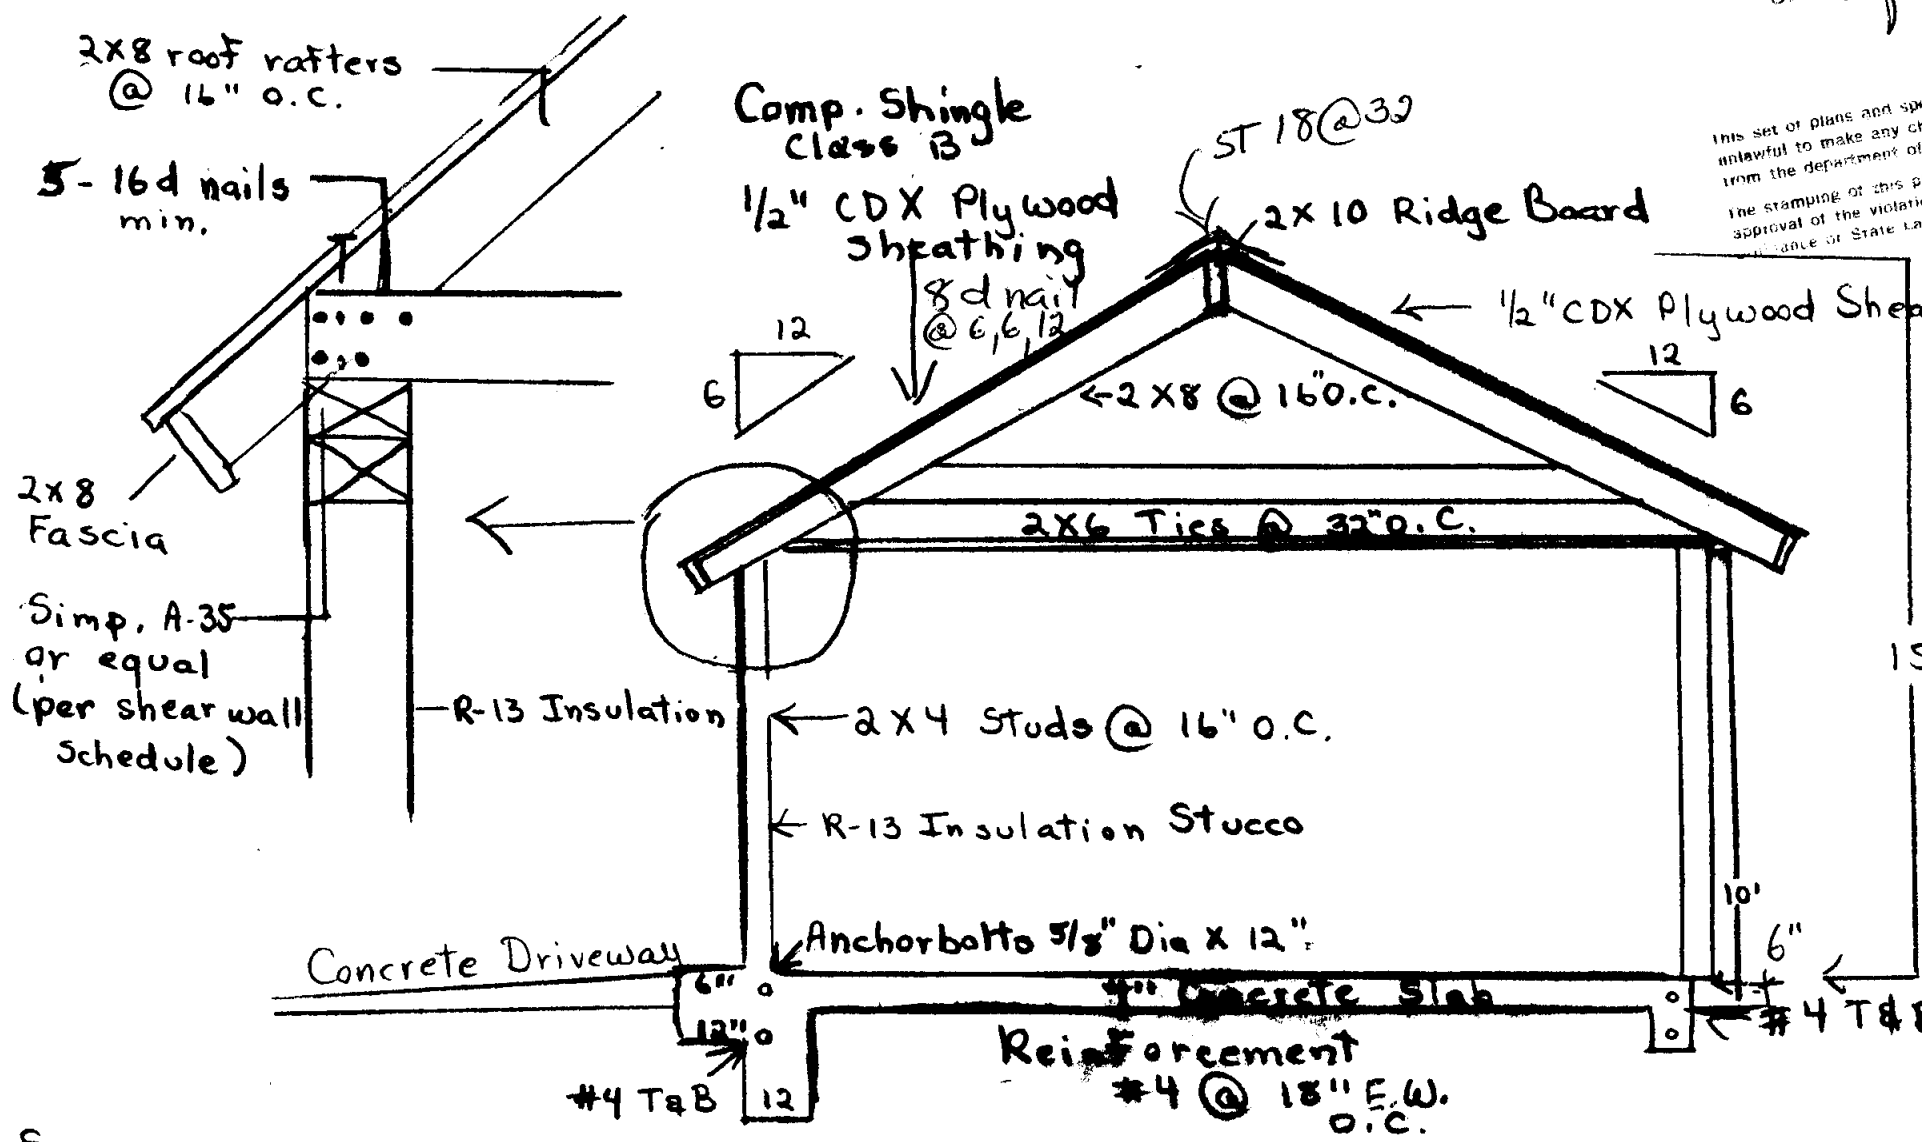 2X8 roof rafters
@ 16" O.C.
5-16d nails
min.
2X8
Fascia
Simp. A-35
or equal
(per shear wall
schedule)
R-13 Insulation
Comp. Shingle
Class B
1/2" CDX Plywood
Sheathing
8d nail
@ 6,6,12
ST 18@32
2X10 Ridge Board
This set of plans and
unlawful to make any
from the department of
The stamping of this
approval of the
or State
1/2" CDX Plywood
12
6
12
6
2X8 @ 16" O.C.
2X6 Ties @ 32" O.C.
2X4 Studs @ 16" O.C.
R-13 Insulation Stucco
10'
6"
Anchorbolts 5/8" Dia X 12"
Concrete Driveway
6"
12"
4" Concrete Slab
#4 T&
Reinforcement
#4 @ 18" E.W.
O.C.
#4 T&B
12